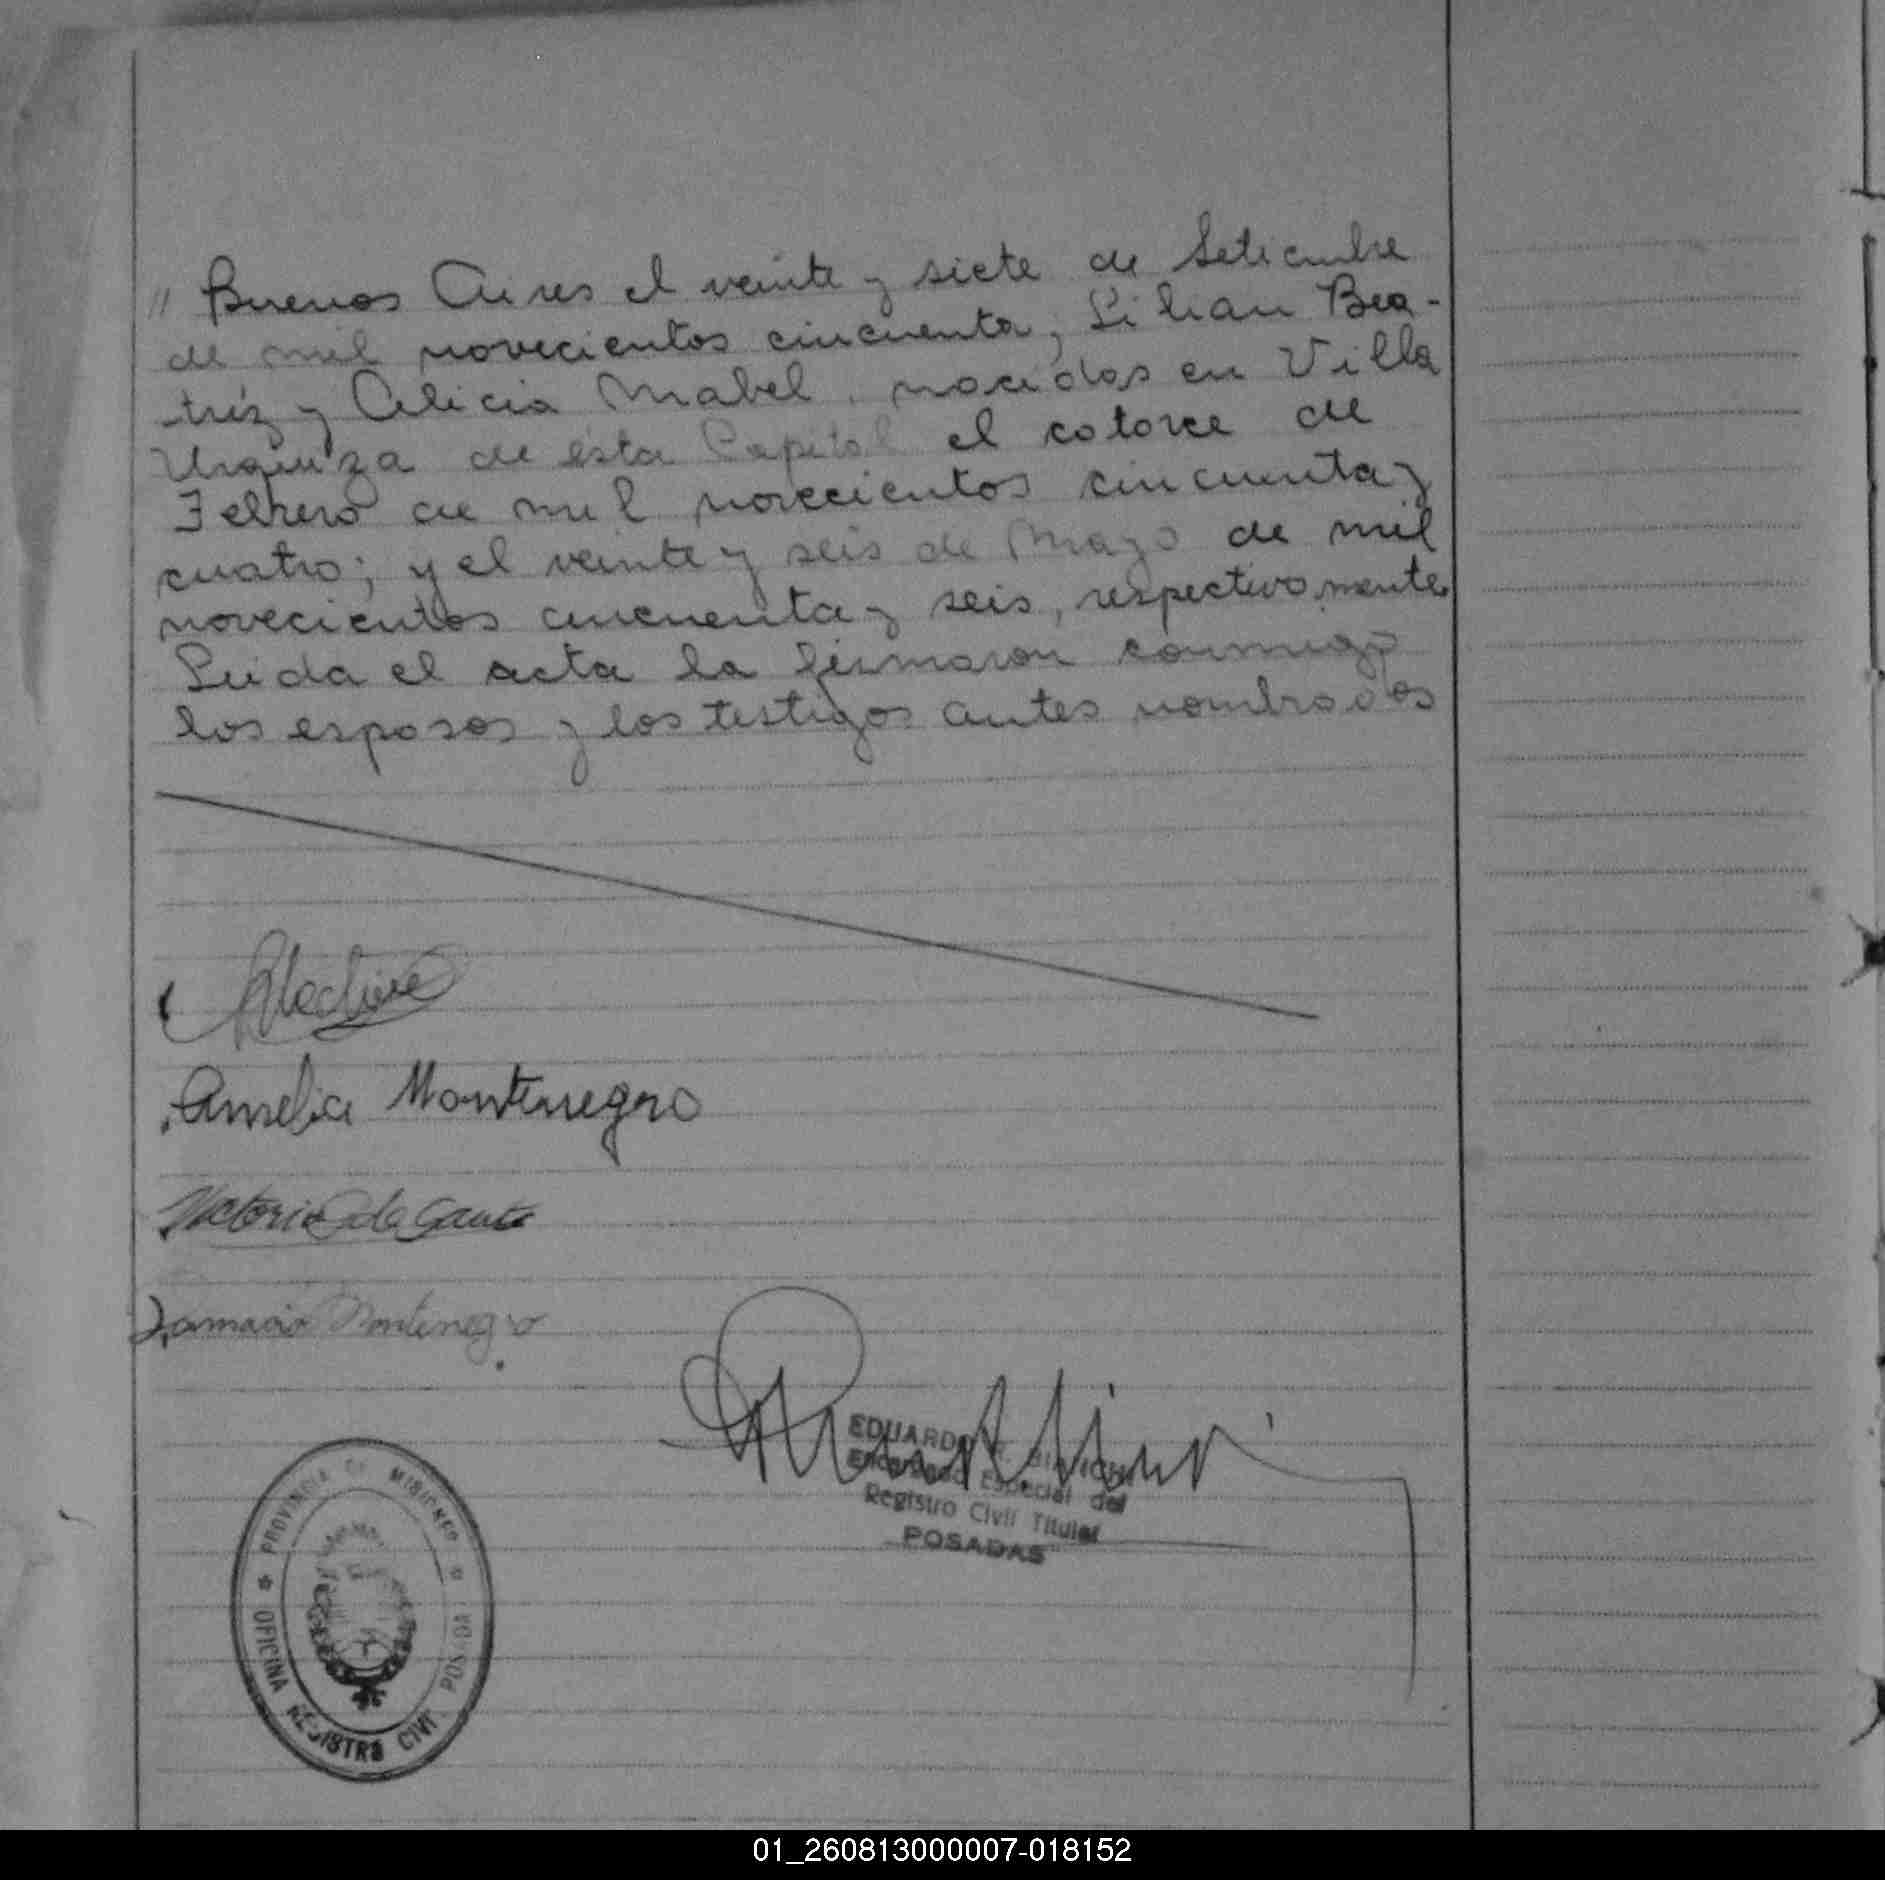 // Buenos Aires el veinte y siete de Setiembre
de mil novecientos cincuenta; Lilian Bea-
tríz y Alicia Mabel, nacidas en Villa
Urquiza de ésta Capital el catorce de
Febrero de mil novecientos cincuenta y
cuatro; y el veinte y seis de Mayo de mil
novecientos cincuenta y seis, respectivamente
Leida el acta la firmaron conmigo
los esposos y los testigos antes nombrados
Amelia Montenegro
Victoria de
Montenegro
EDUARDO
Encargado Especial del
Registro Civil Titular
POSADAS
PROVINCIA DE MISIONES
OFICINA REGISTRO CIVIL POSADAS
01_260813000007-018152